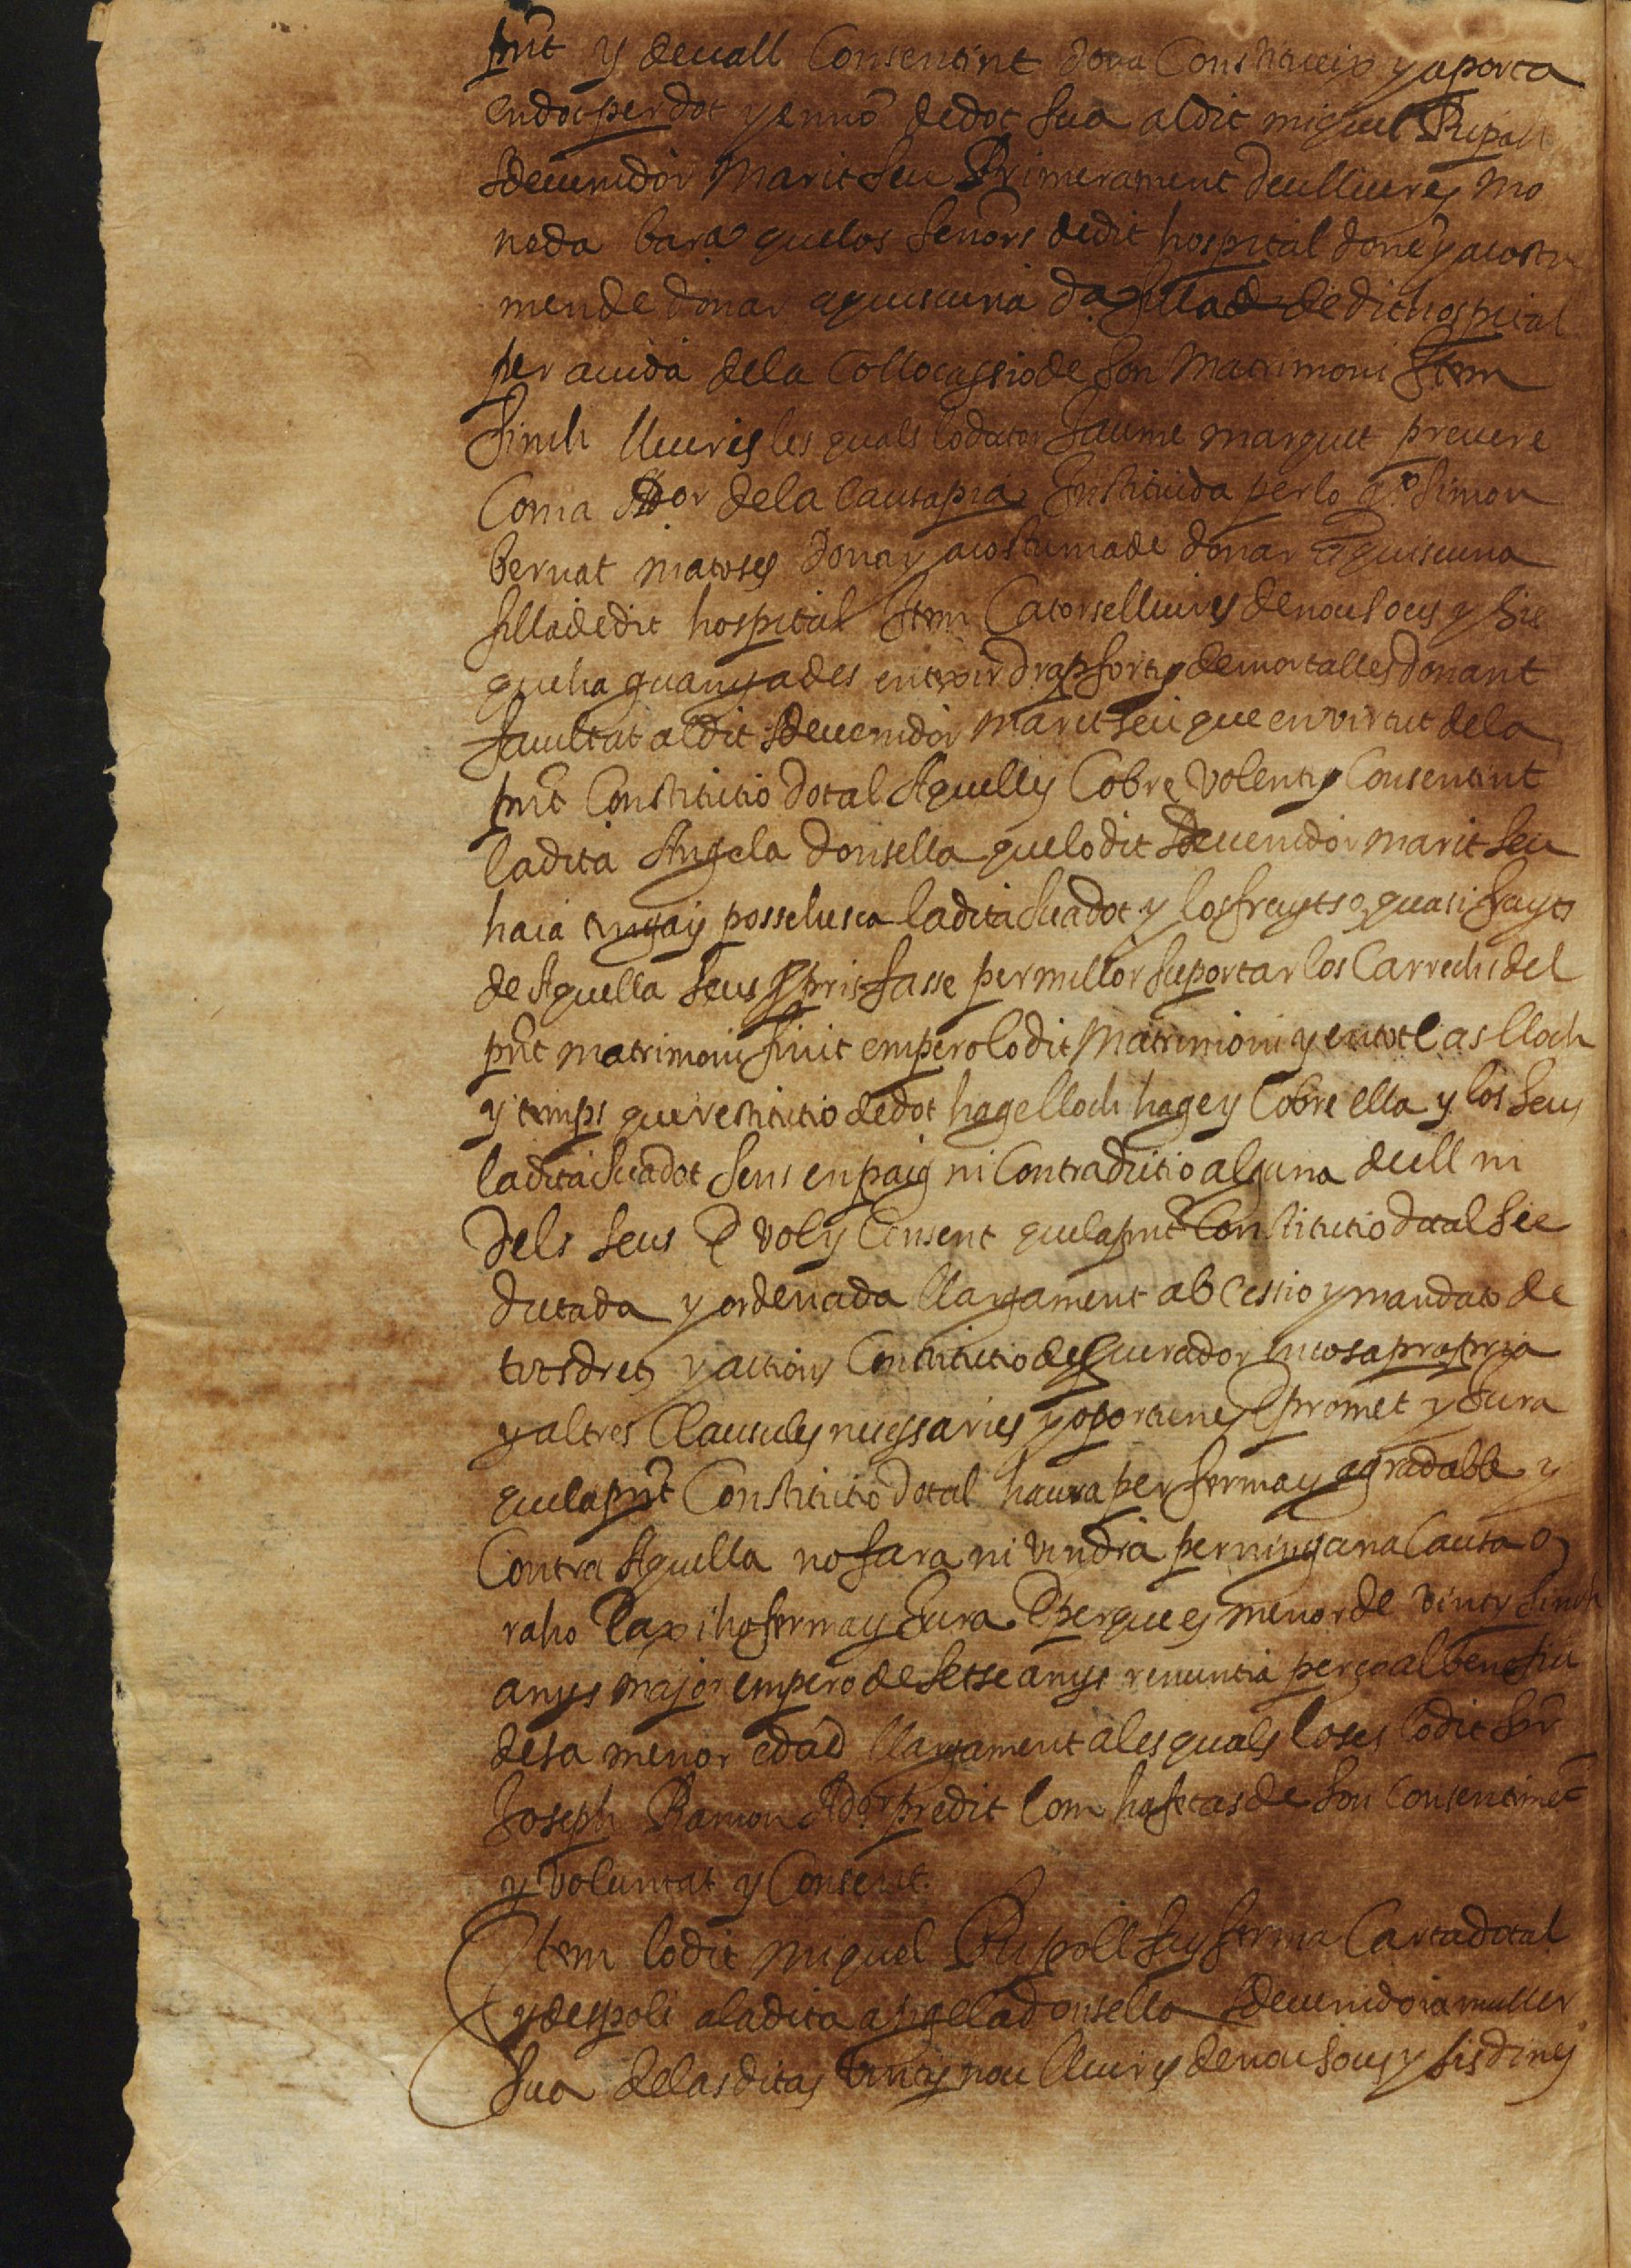 pnt y devall Consentint dona Constitueix y aporta
en dot per dot y en nō de dot sua al dit miquel Ripoll
sdevenidor Marit seu Primerament deu lliures mo
neda bar.a que los señors de dit hospital done y acostu
men de donar a quiscuna d.a filla de dit hospital
per aiuda de la Collocassio de son Matrimoni Item
sinch lliures les quals lo dutor Jaume marquet prevere
Com a Ador de la Causa pia Instituida per lo q.o Simon
bernat matoses dona y acostuma de donar a quiscuna
filla de dit hospital Item Catorse lliures de nou sous y sis
que ha guanyades en texir drap fort y de mortalles donant
facultat al dit sdevenidor Marit seu que en virtut de la
pnt Constitutio dotal Aquelles Cobre Volent y Consentint
la dita Angela donsella que lo dit sdevenidor marit seu
haia tinga y possehesca la dita sua dot y los fruyts o quasi fruyts
de Aquella seus ppris fasse per millor suportar los Carrechs del
pnt matrimoni finit empero lo dit Matrimoni y en tot cas lloch
y temps que restitutio de dot hage lloch hage y Cobre ella y los seus
la dita sua dot sens enpaig ni Contradictio alguna de ell ni
dels seus E vol y Consent que la pnt Constitutio dotal sie
dictada y ordenada llargament ab Cessio y mandato de
tots drets y actions Constitutio de pcurador en cosa propria
y altres Clausules necessaries y oportunes E promet y Jura
que la pnt Constitutio dotal haura per ferma y agradable y
Contra Aquella no fara ni vindra per ninguna Causa o
raho E axi ho ferma y Jura E perque es menor de vint y sinch
anys major empero de setse anys renuntia per ço al benefici
de sa menor edad llargament a les quals Coses lo dit Sr
Joseph Ramon Ador predit Com ha fetas de son Consentimēt
y voluntat y Consent.
Item lo dit miquel Ripoll fa y ferma Carta dotal
y de espoli a la dita angela donsella sdevenidora muller
sua de las ditas vint y nou lliures de nou sous y sis diners